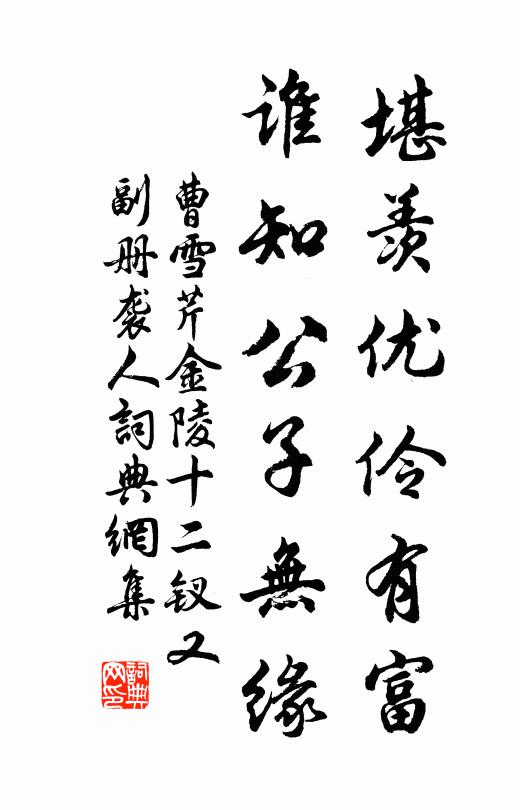 堪羡优伶有富
谁知公子無缘
曹雪芹金陵十二钗又
副册袭人詞典網集
詞典
网印